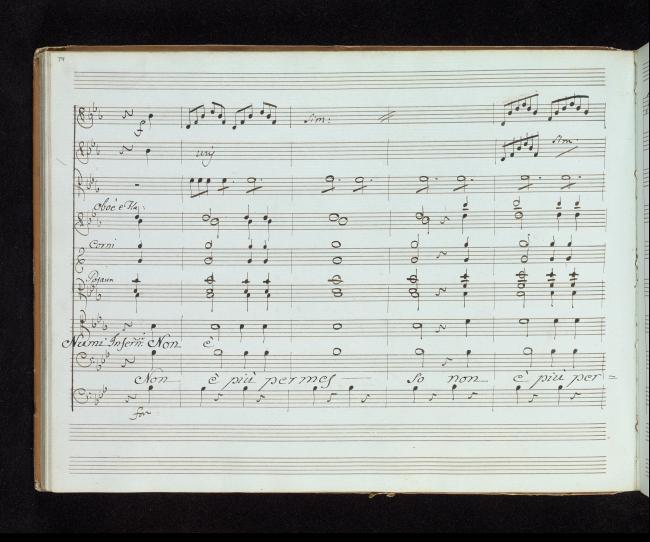 Sim:
unis
Sim:
Oboè e Fla:
Corni
Posaun
Numi Infern: Non è
Non è più permes so non è più per =
for